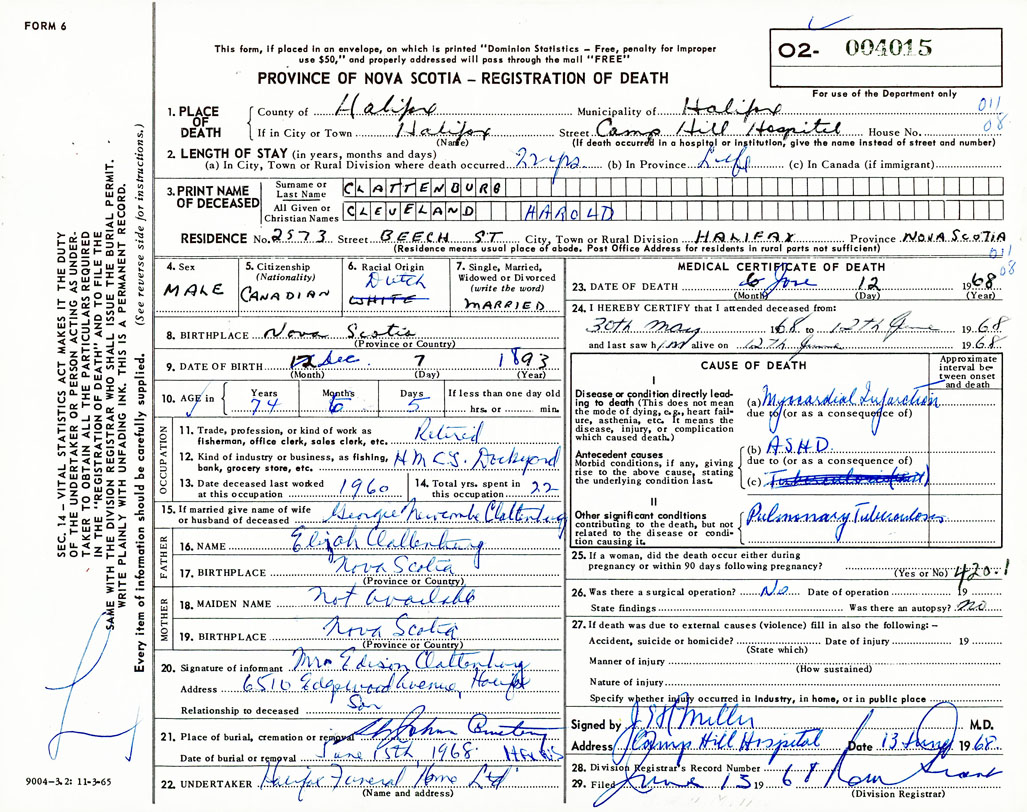 FORM 6
O2- 004015
This form, if placed in an envelope, on which is printed "Dominion Statistics – Free, penalty for improper
use $50," and properly addressed will pass through the mail "FREE"
PROVINCE OF NOVA SCOTIA – REGISTRATION OF DEATH
For use of the Department only
011
08
1. PLACE OF DEATH
County of Halifax Municipality of Halifax
If in City or Town Halifax Street Camp Hill Hospital House No.
(Name) (If death occurred in a hospital or institution, give the name instead of street and number)
2. LENGTH OF STAY (in years, months and days)
(a) In City, Town or Rural Division where death occurred 22 yrs (b) In Province Life (c) In Canada (if immigrant)
3. PRINT NAME OF DECEASED
Surname or Last Name CLATTENBURG
All Given or Christian Names CLEVELAND HAROLD
RESIDENCE No. 2573 Street BEECH ST City, Town or Rural Division HALIFAX Province NOVA SCOTIA
(Residence means usual place of abode. Post Office Address for residents in rural parts not sufficient)
011
08
4. Sex
MALE
5. Citizenship
(Nationality)
CANADIAN
6. Racial Origin
Dutch
WHITE
7. Single, Married,
Widowed or Divorced
(write the word)
MARRIED
8. BIRTHPLACE Nova Scotia
(Province or Country)
9. DATE OF BIRTH 12 Dec. 7 1893
(Month) (Day) (Year)
10. AGE in Years 74 Months 6 Days 5 If less than one day old
hrs. or min.
OCCUPATION
11. Trade, profession, or kind of work as
fisherman, office clerk, sales clerk, etc. Retired
12. Kind of industry or business, as fishing,
bank, grocery store, etc. H.M.C.S. Dockyard
13. Date deceased last worked
at this occupation 1960
14. Total yrs. spent in
this occupation 22
15. If married give name of wife
or husband of deceased Georgie Newcombe Clattenburg
FATHER
16. NAME Elijah Clattenburg
17. BIRTHPLACE Nova Scotia
(Province or Country)
MOTHER
18. MAIDEN NAME Not Available
19. BIRTHPLACE Nova Scotia
(Province or Country)
20. Signature of informant Mrs Edison Clattenburg
Address 6510 Edgewood Avenue, Halifax
Relationship to deceased Son
21. Place of burial, cremation or removal St. John Cemetery
Date of burial or removal June 15th 1968
22. UNDERTAKER Halifax Funeral Home Ltd
(Name and address)
MEDICAL CERTIFICATE OF DEATH
23. DATE OF DEATH 6 June 12 1968
(Month) (Day) (Year)
24. I HEREBY CERTIFY that I attended deceased from:
30th May 1968 to 12th June 1968
and last saw him alive on 12th June 1968
CAUSE OF DEATH
Approximate
interval be-
tween onset
and death
I
Disease or condition directly lead-
ing to death (This does not mean
the mode of dying, e.g., heart fail-
ure, asthenia, etc. It means the
disease, injury, or complication
which caused death.)
(a) Myocardial Infarction
due to (or as a consequence of)
Antecedent causes
Morbid conditions, if any, giving
rise to the above cause, stating
the underlying condition last.
(b) A.S.H.D.
due to (or as a consequence of)
(c)
II
Other significant conditions
contributing to the death, but not
related to the disease or condi-
tion causing it.
Pulmonary Tuberculosis
25. If a woman, did the death occur either during
pregnancy or within 90 days following pregnancy?
(Yes or No) 420.1
26. Was there a surgical operation? No Date of operation 19
State findings Was there an autopsy? No
27. If death was due to external causes (violence) fill in also the following: –
Accident, suicide or homicide? Date of injury 19
(State which)
Manner of injury
(How sustained)
Nature of injury
Specify whether injury occurred in industry, in home, or in public place
Signed by J. S. H. Miller M.D.
Address Camp Hill Hospital Date 13 June 1968
28. Division Registrar's Record Number
29. Filed June 13 1968
(Division Registrar)
SEC. 14 – VITAL STATISTICS ACT MAKES IT THE DUTY
OF THE UNDERTAKER OR PERSON ACTING AS UNDER-
TAKER TO OBTAIN ALL THE PARTICULARS REQUIRED
IN THE "REGISTRATION OF DEATH" AND TO FILE THE
SAME WITH THE DIVISION REGISTRAR WHO SHALL ISSUE THE BURIAL PERMIT.
WRITE PLAINLY WITH UNFADING INK. THIS IS A PERMANENT RECORD.
Every item of information should be carefully supplied. (See reverse side for instructions.)
9004–3.2: 11-3-65